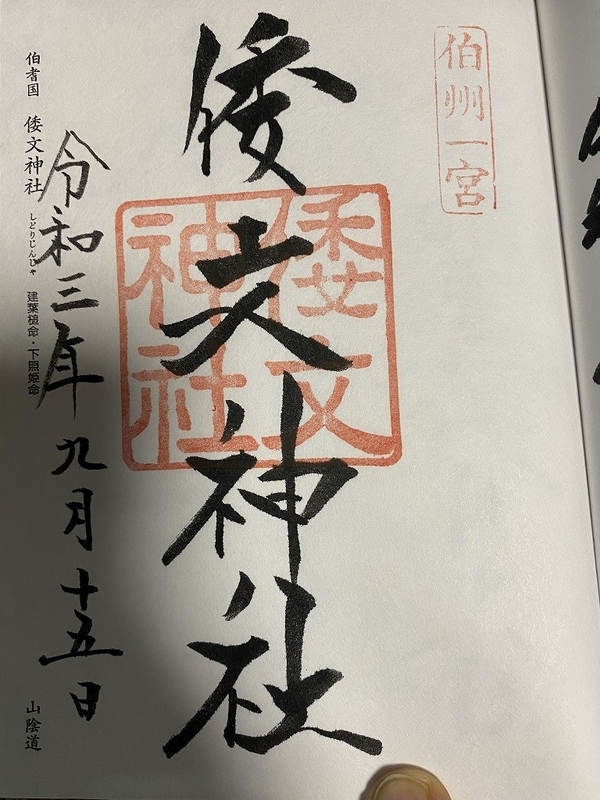 伯州一宮
倭文神社
倭文
神社
令和三年九月十五日
伯耆国 倭文神社 しとりじんじゃ 建葉槌命・下照姫命 山陰道